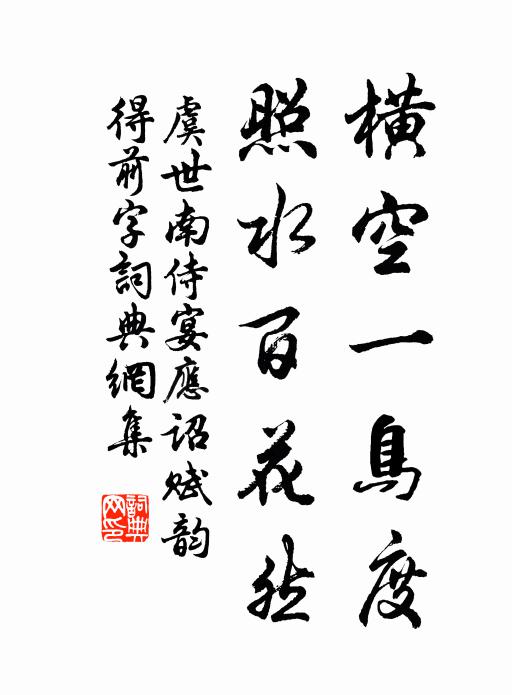 橫空一鳥度
照水百花然
虞世南侍宴應詔賦韵
得前字詞典網集
詞典网印